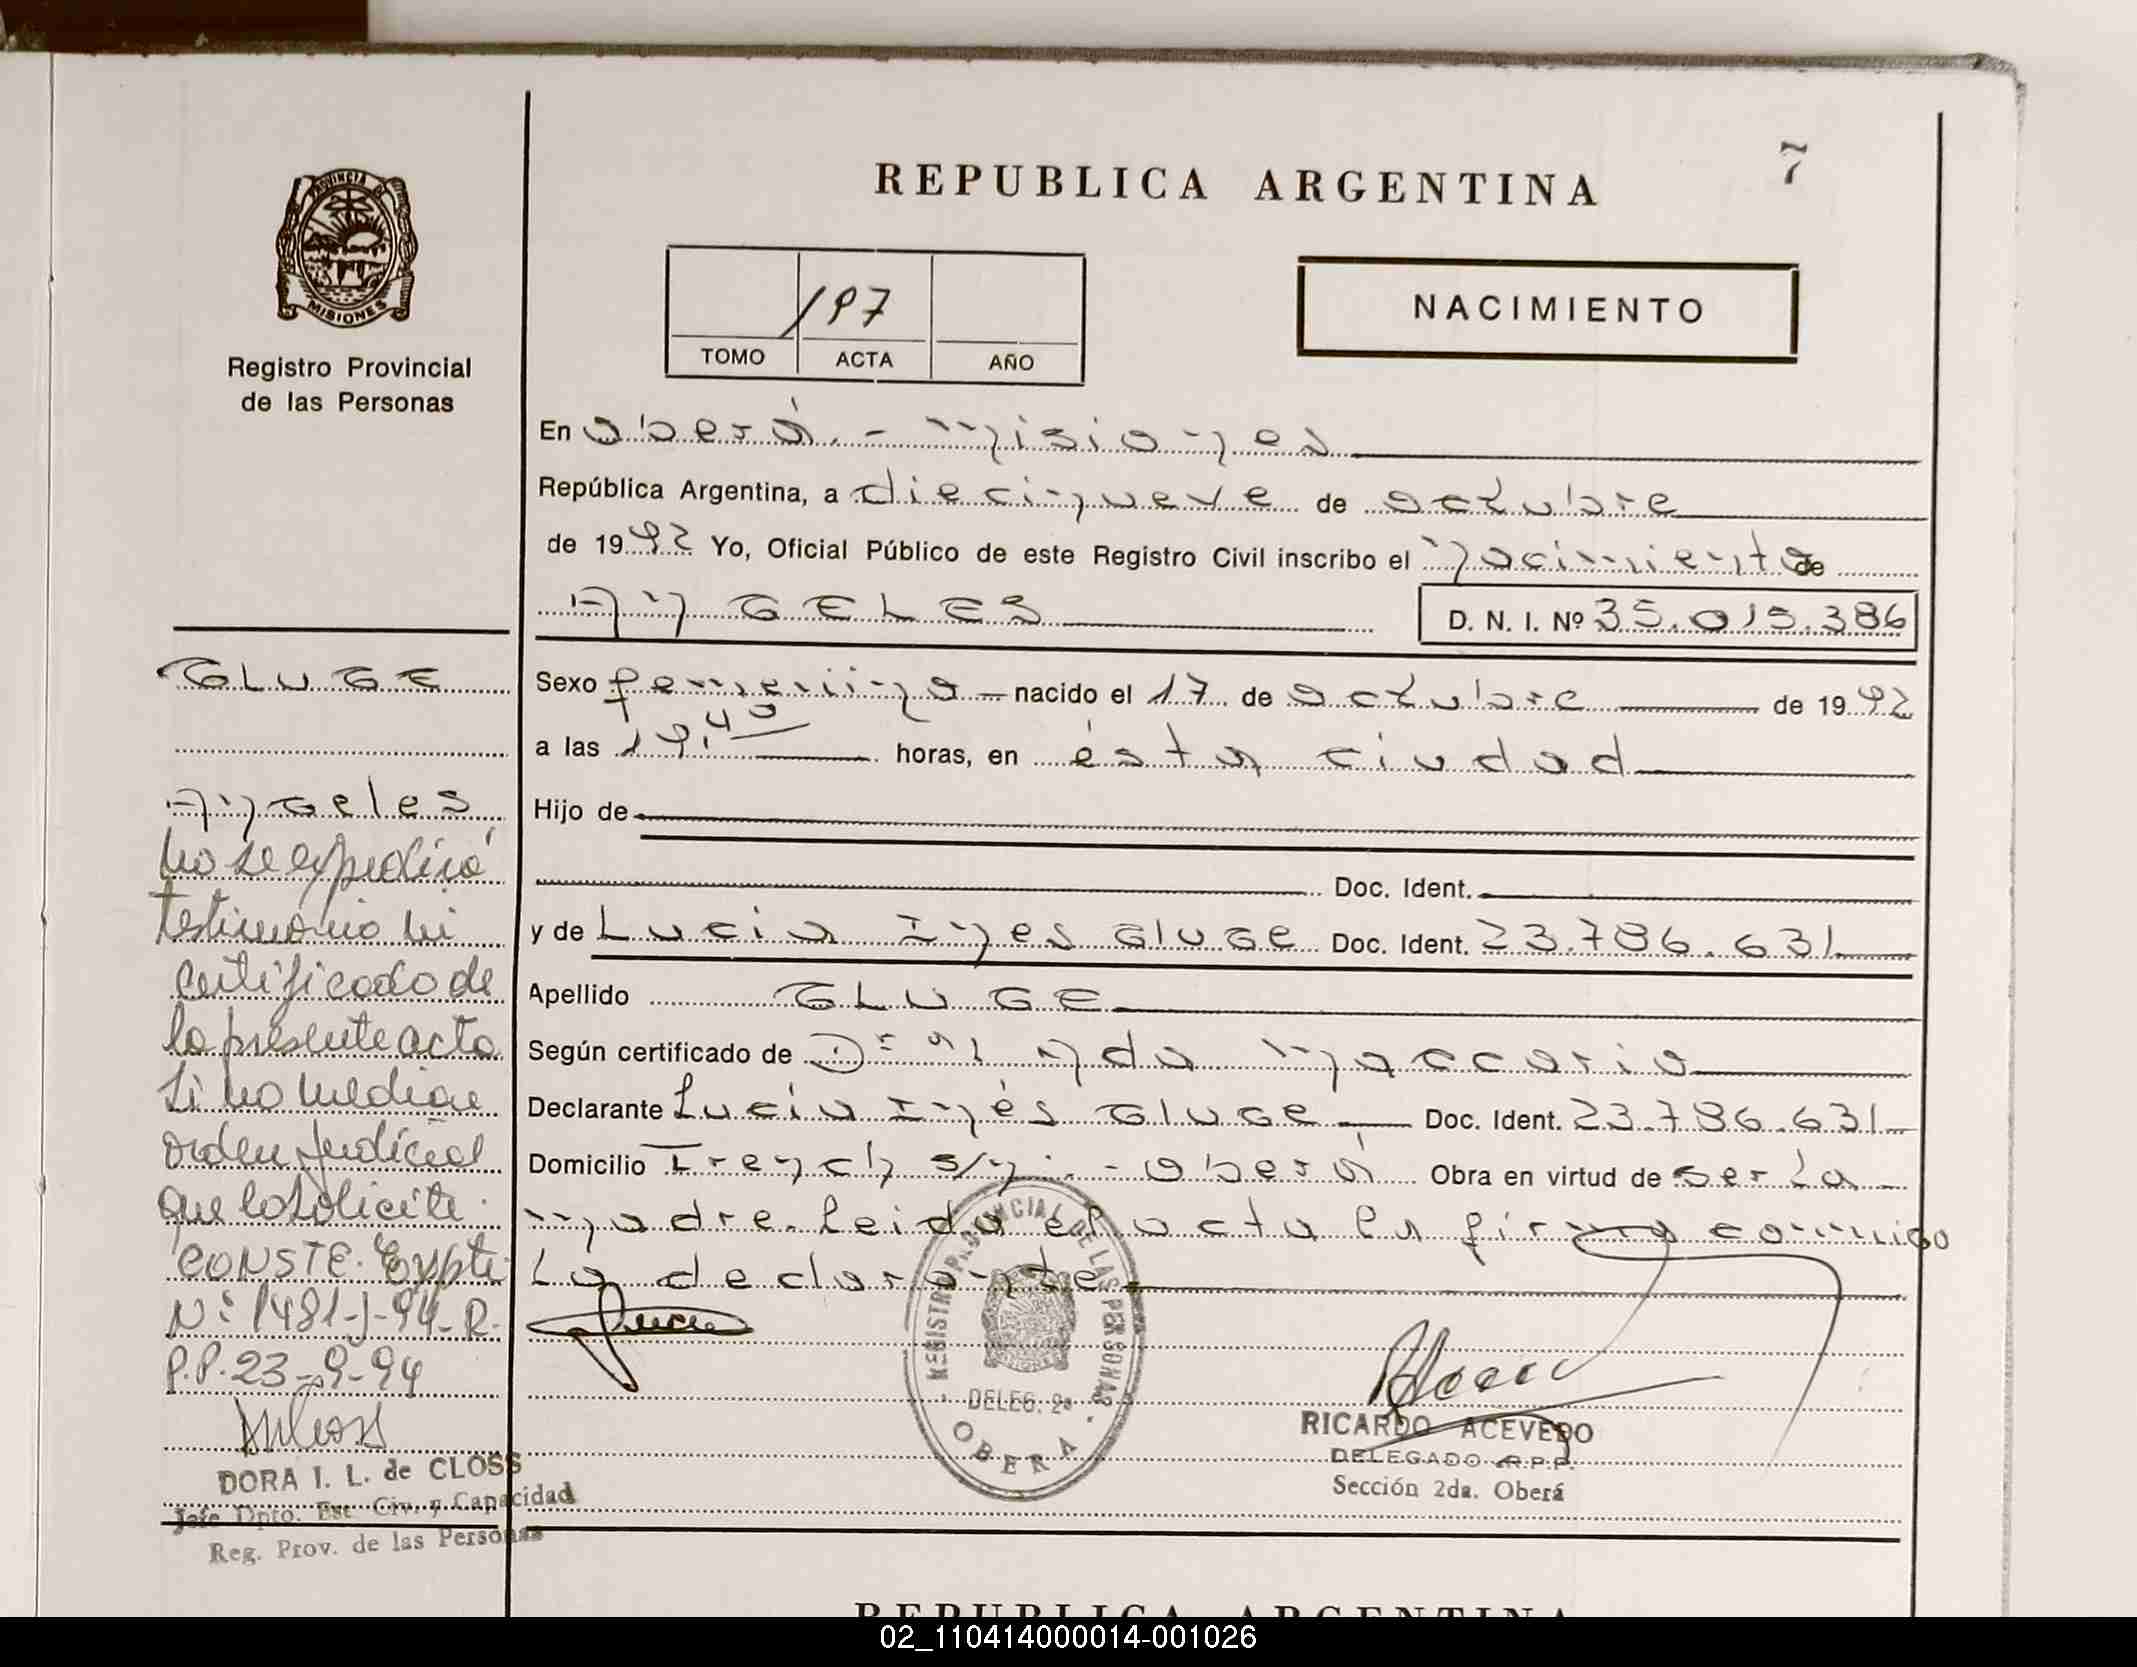 7
REPUBLICA ARGENTINA
PROVINCIA DE
MISIONES
Registro Provincial
de las Personas
197
TOMO ACTA AÑO
NACIMIENTO
En oberá. - misiones
República Argentina, a diecinueve de octubre
de 1992 Yo, Oficial Público de este Registro Civil inscribo el nacimiento de
ANGELES D. N. I. Nº 35.015.386
Sexo femenino nacido el 17 de octubre de 1992
a las 19,40 horas, en ésta ciudad
Hijo de
Doc. Ident.
y de Lucia Ines Gluge Doc. Ident. 23.786.631
Apellido GLUGE
Según certificado de Maccario
Declarante Lucía Inés Gluge Doc. Ident. 23.786.631
Domicilio French s/n. - oberá Obra en virtud de ser la
madre. leida el acta la firma conmigo
La declarante
GLUGE
Angeles
No se expedirá
testimonio ni
certificado de
la presente acta
si no mediare
orden judicial
que lo solicite.
CONSTE. Expte.
Nº 1481-J-94-R.
P.P. 23-9-94
DORA I. L. de CLOSS
Jefe Dpto. Est. Civ. y Capacidad
Reg. Prov. de las Personas
REGISTRO PROVINCIAL DE LAS PERSONAS
DELEG. 2ª
OBERA
RICARDO ACEVEDO
DELEGADO R.P.P.
Sección 2da. Oberá
REPUBLICA ARGENTINA
02_110414000014-001026